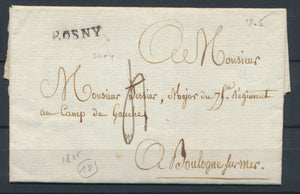 ROSNY
A Monsieur
Monsieur Tessier, Major du 75e. Régiment
au Camp de Gauche
A Boulogne sur mer.
1805
18